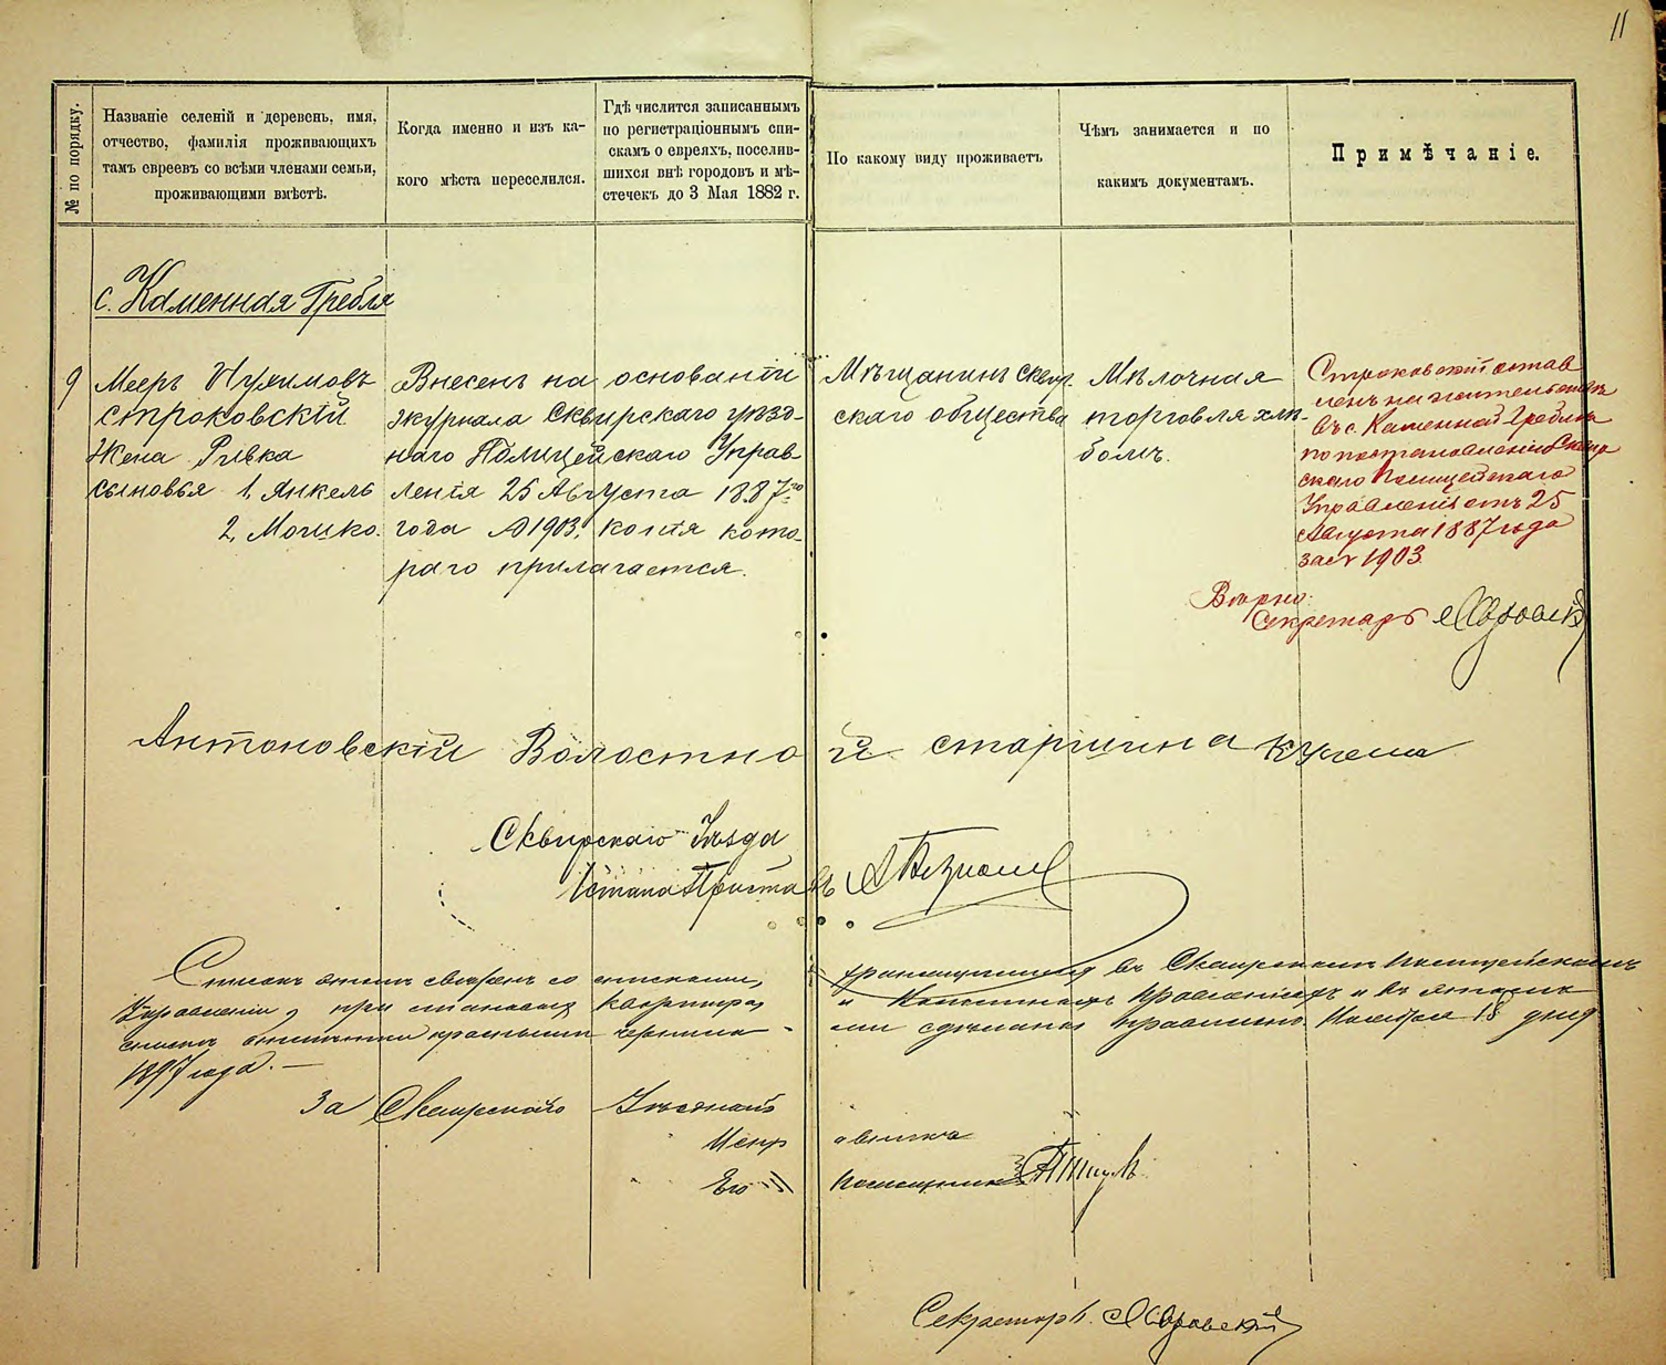 11
№ по порядку.
Названіе селеній и деревень, имя,
отчество, фамилія проживающихъ
тамъ евреевъ со всѣми членами семьи,
проживающими вмѣстѣ.
Когда именно и изъ ка-
кого мѣста переселился.
Гдѣ числится записаннымъ
по регистраціоннымъ спи-
скамъ о евреяхъ, поселив-
шихся внѣ городовъ и мѣ-
стечекъ до 3 Мая 1882 г.
По какому виду проживаетъ
Чѣмъ занимается и по
какимъ документамъ.
Примѣчаніе.
с. Каменная Гребля
9
Мееръ Нухимовъ
Строковскій
Жена Ривка
сыновья 1, Янкель
2, Мошко.
Внесенъ на основаніи
журнала Сквирскаго уѣзд-
наго Полицейскаго Управ
ленія 25 Августа 1887го
года № 1903, копія кото-
раго прилагается.
Мѣщанинъ Сквир.
скаго общества
Мѣлочная
торговля хлѣ-
бомъ.
Строковскій остав
ленъ на жительствѣ
въ с. Каменной Греблѣ
по постановленію Сквир
скаго Полицейскаго
Управленія отъ 25
Августа 1887 года
за № 1903
Вѣрно:
Секретарь
Антоновскій Волостной старшина
Сквирскаго Уѣзда
Стана Приставъ
Списокъ этотъ свѣренъ со списками, хранящимися въ Сквирскомъ Полицейскомъ
Управленіи, при становыхъ квартирахъ и Волостныхъ Правленіяхъ и въ этомъ
списке отмѣтки красными чернила-ми сдѣланы правильно. Ноября 18 дня
1897 года.
За Сквирскаго Уѣзднаго
Исправника
Его Помощникъ
Секретарь